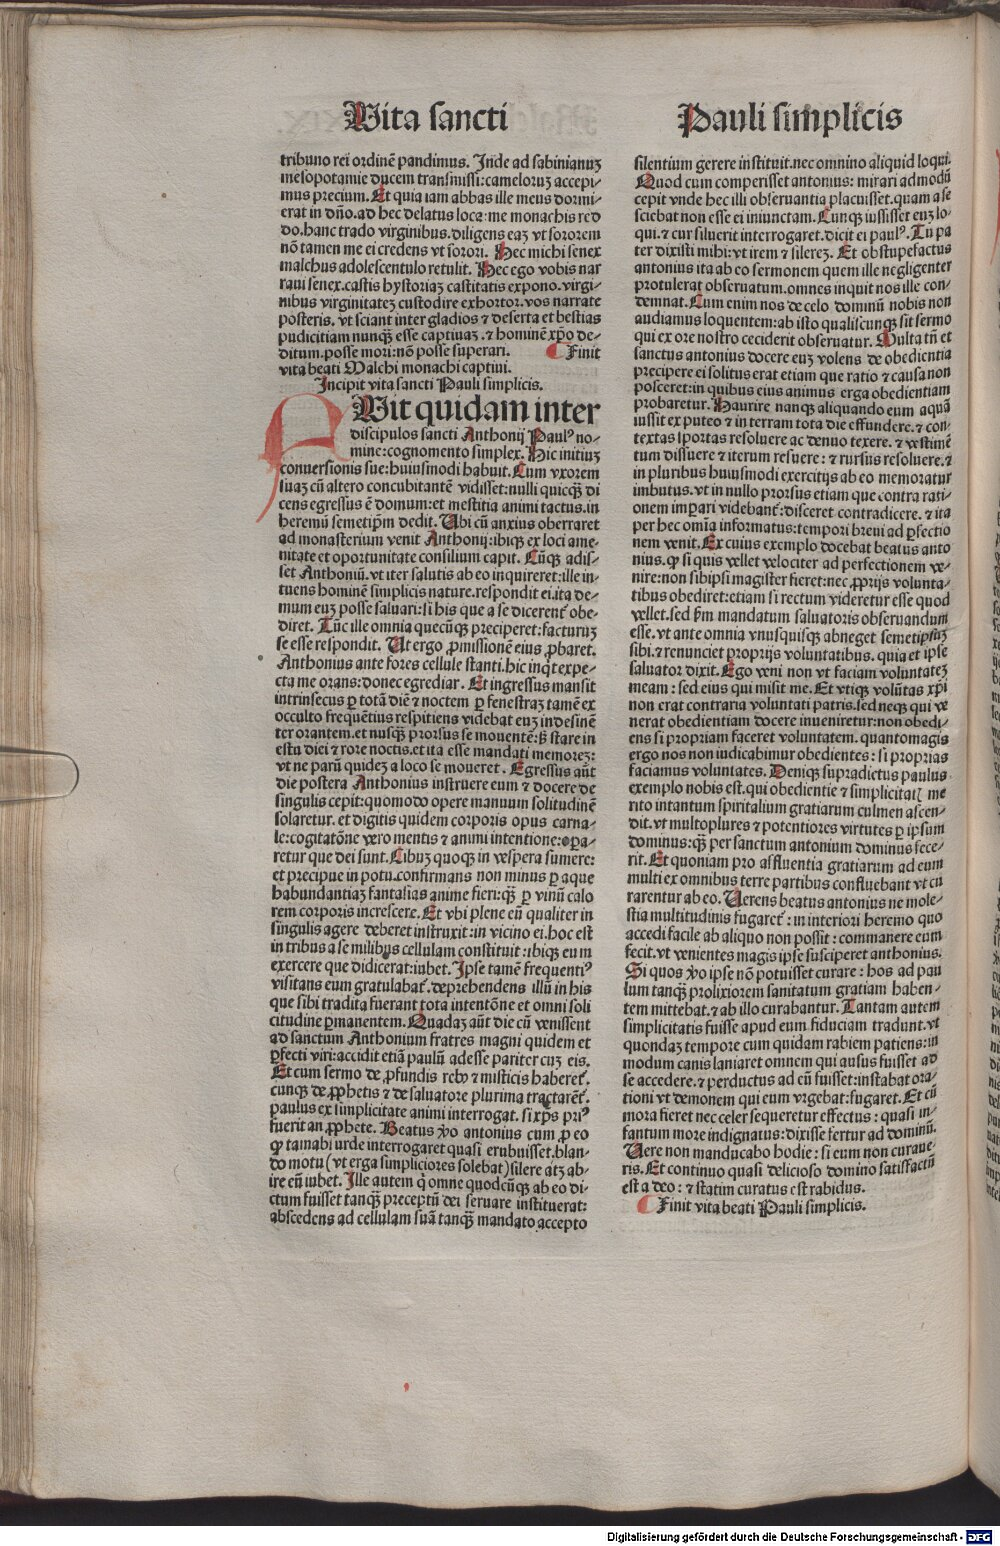 Vita sancti
tribuno rei ordinē pandimus. Inde ad sabinianuʒ
mesopotamie ducem transmissi: cameloruʒ accepi⸗
mus precium. Et quia iam abbas ille meus dormi⸗
erat in dn̄o. ad hec delatus loca: me monachis red
do. hanc trado virginibus. diligens eaʒ vt sororem
nō tamen me ei credens vt sorori. Hec michi senex
malchus adolescentulo retulit. Hec ego vobis nar
raui senex. castis hystoriaʒ castitatis expono. virgi⸗
nibus virginitateʒ custodire exhortor. vos narrate
posteris. vt sciant inter gladios ⁊ deserta et bestias
pudicitiam nunqꝫ esse captiuaʒ. ⁊ hominē xp̄o de⸗
ditum. posse mori: nō posse superari. Finit
vita beati Malchi monachi captiui.
Incipit vita sancti Pauli simplicis.
FVit quidam inter
discipulos sancti Anthonij Paulꝰ no⸗
mine: cognomento simplex. Hic initiuʒ
conuersionis sue: huiusmodi habuit. Cum vxorem
suaʒ cū altero concubitantē vidisset: nulli quicqꝫ di
cens egressus ē domum: et mestitia animi tactus. in
heremū semetip̄m dedit. Ubi cū anxius oberraret
ad monasterium venit Anthonij: ibiqꝫ ex loci ame
nitate et oportunitate consilium capit. Cūqꝫ adis⸗
set Anthoniū. vt iter salutis ab eo inquireret: ille in⸗
tuens hominē simplicis nature. respondit ei. ita de⸗
mum euʒ posse saluari: si his que a se dicerent᷑ obe⸗
diret. Tūc ille omnia quecūqꝫ preciperet: facturuʒ
se esse respondit. Ut ergo ꝓmissionē eius ꝓbaret.
Anthonius ante fores cellule stanti. hic inqͥt expe⸗
cta me orans: donec egrediar. Et ingressus mansit
intrinsecus ꝑ totā diē ⁊ noctem ꝑ fenestraʒ tamē ex
occulto frequētius respitiens videbat euʒ indesinē
ter orantem. et nusqꝫ prorsus se mouentē: sꝫ stare in
estu diei ⁊ rore noctis. et ita esse mandati memoreʒ:
vt ne parū quideʒ a loco se moueret. Egressus aūt
die postera Anthonius instruere eum ⁊ docere de
singulis cepit: quomodo opere manuum solitudinē
solaretur. et digitis quidem corporis opus carna⸗
le: cogitatōne vero mentis ⁊ animi intentione: oꝑa⸗
retur que dei sunt. Cibuʒ quoqꝫ in vespera sumere:
et precipue in potu. confirmans non minus ꝑ aque
habundantiaʒ fantasias anime fieri: qꝫ ꝑ vinū calo
rem corporis increscere. Et vbi plene eū qualiter in
singulis agere deberet instruxit: in vicino ei. hoc est
in tribus a se milibus cellulam constituit: ibiqꝫ eum
exercere que didicerat: iubet. Ipse tamē frequentiꝰ
visitans eum gratulabat᷑. deprehendens illū in his
que sibi tradita fuerant tota intentōne et omni soli
citudine ꝑmanentem. Quadaʒ aūt die cū venissent
ad sanctum Anthonium fratres magni quidem et
ꝑfecti viri: accidit etiā paulū adesse pariter cuʒ eis.
Et cum sermo de ꝓfundis rebꝰ ⁊ misticis haberet᷑.
cunqꝫ de ꝓphetis ⁊ de saluatore plurima tractarēt᷑.
paulus ex simplicitate animi interrogat. si xp̄s priꝰ
fuerit an ꝓphete. Beatus ꝟo antonius cum ꝓ eo
ꝙ tam abiurde interrogaret quasi erubuisset. blan⸗
do motu (vt erga simpliciores solebat) silere atꝫ ab⸗
ire eū iubet. Ille autem qͥ omne quodcūqꝫ ab eo di⸗
ctum fuisset tanqꝫ preceptū dei seruare instituerat:
abscedens ad cellulam suā tanqꝫ mandato accepto
Pauli simplicis
silentium gerere instituit. nec omnino aliquid loqui.
Quod cum comperisset antonius: mirari admodū
cepit vnde hec illi obseruantia placuisset. quam a se
sciebat non esse ei iniunctam. Cunqꝫ iussisset euʒ lo⸗
qui. ⁊ cur siluerit interrogaret. dicit ei paulꝰ. Tu pa
ter dixisti mihi: vt irem ⁊ silereʒ. Et obstupefactus
antonius ita ab eo sermonem quem ille negligenter
protulerat obseruatum. omnes inquit nos ille con⸗
demnat. Cum enim nos de celo dominū nobis non
audiamus loquentem: ab isto qualiscunqꝫ sit sermo
qui ex ore nostro ceciderit obseruatur. Multa tn̄ et
sanctus antonius docere euʒ volens de obedientia
precipere ei solitus erat etiam que ratio ⁊ causa non
posceret: in quibus eius animus erga obedientiam
probaretur. Haurire nanqꝫ aliquando eum aquā
iussit ex puteo ⁊ in terram tota die effundere. ⁊ con⸗
textas sportas resoluere ac denuo texere. ⁊ vestimē
tum dissuere ⁊ iterum resuere: ⁊ rursus resoluere. ⁊
in pluribus huiusmodi exercitijs ab eo memoratur
imbutus. vt in nullo prorsus etiam que contra rati⸗
onem imꝑari videbant᷑: disceret contradicere. ⁊ ita
per hec om̄ia informatus: tempori breui ad ꝑfectio
nem venit. Ex cuius exemplo docebat beatus anto
nius. ꝙ si quis vellet velociter ad perfectionem ve⸗
nire: non sibipsi magister fieret: nec ꝓprijs volunta⸗
tibus obediret: etiam si rectum videretur esse quod
vellet. sed ẜm mandatum saluatoris obseruandum
esse. vt ante omnia vnusquisqꝫ abneget semetipsuʒ
sibi. ⁊ renunciet proprijs voluntatibus. quia et ipse
saluator dixit. Ego veni non vt faciam voluntateʒ
meam: sed eius qui misit me. Et vtiqꝫ volūtas xp̄i
non erat contraria voluntati patris. sed neqꝫ qui ve
nerat obedientiam docere inueniretur: non obedi⸗
ens si propriam faceret voluntatem. quantomagis
ergo nos non iudicabimur obedientes: si proprias
faciamus voluntates. Deniqꝫ supradictus paulus
exemplo nobis est. qui obedientie ⁊ simplicitatꝭ me
rito intantum spiritalium gratiarum culmen ascen⸗
dit. vt multoplures ⁊ potentiores virtutes ꝑ ipsum
dominus: qꝫ per sanctum antonium dominus fece⸗
rit. Et quoniam pro affluentia gratiarum ad eum
multi ex omnibus terre partibus confluebant vt cu
rarentur ab eo. Verens beatus antonius ne mole⸗
stia multitudinis fugaret᷑: in interiori heremo quo
accedi facile ab aliquo non possit: commanere eum
fecit. vt venientes magis ipse susciperet anthonius.
Si quos ꝟo ipse nō potuisset curare: hos ad pau
lum tanqꝫ prolixiorem sanitatum gratiam haben⸗
tem mittebat. ⁊ ab illo curabantur. Tantam autem
simplicitatis fuisse apud eum fiduciam tradunt. vt
quondaʒ tempore cum quidam rabiem patiens: in
modum canis laniaret omnem qui ausus fuisset ad
se accedere. ⁊ perductus ad eū fuisset: instabat ora⸗
tioni vt demonem qui eum vrgebat: fugaret. Et cū
mora fieret nec celer sequeretur effectus: quasi in⸗
fantum more indignatus: dixisse fertur ad dominū.
Vere non manducabo hodie: si eum non curaue⸗
ris. Et continuo quasi delicioso domino satisfactū
est a deo: ⁊ statim curatus est rabidus.
Finit vita beati Pauli simplicis.
Digitalisierung gefördert durch die Deutsche Forschungsgemeinschaft - DFG